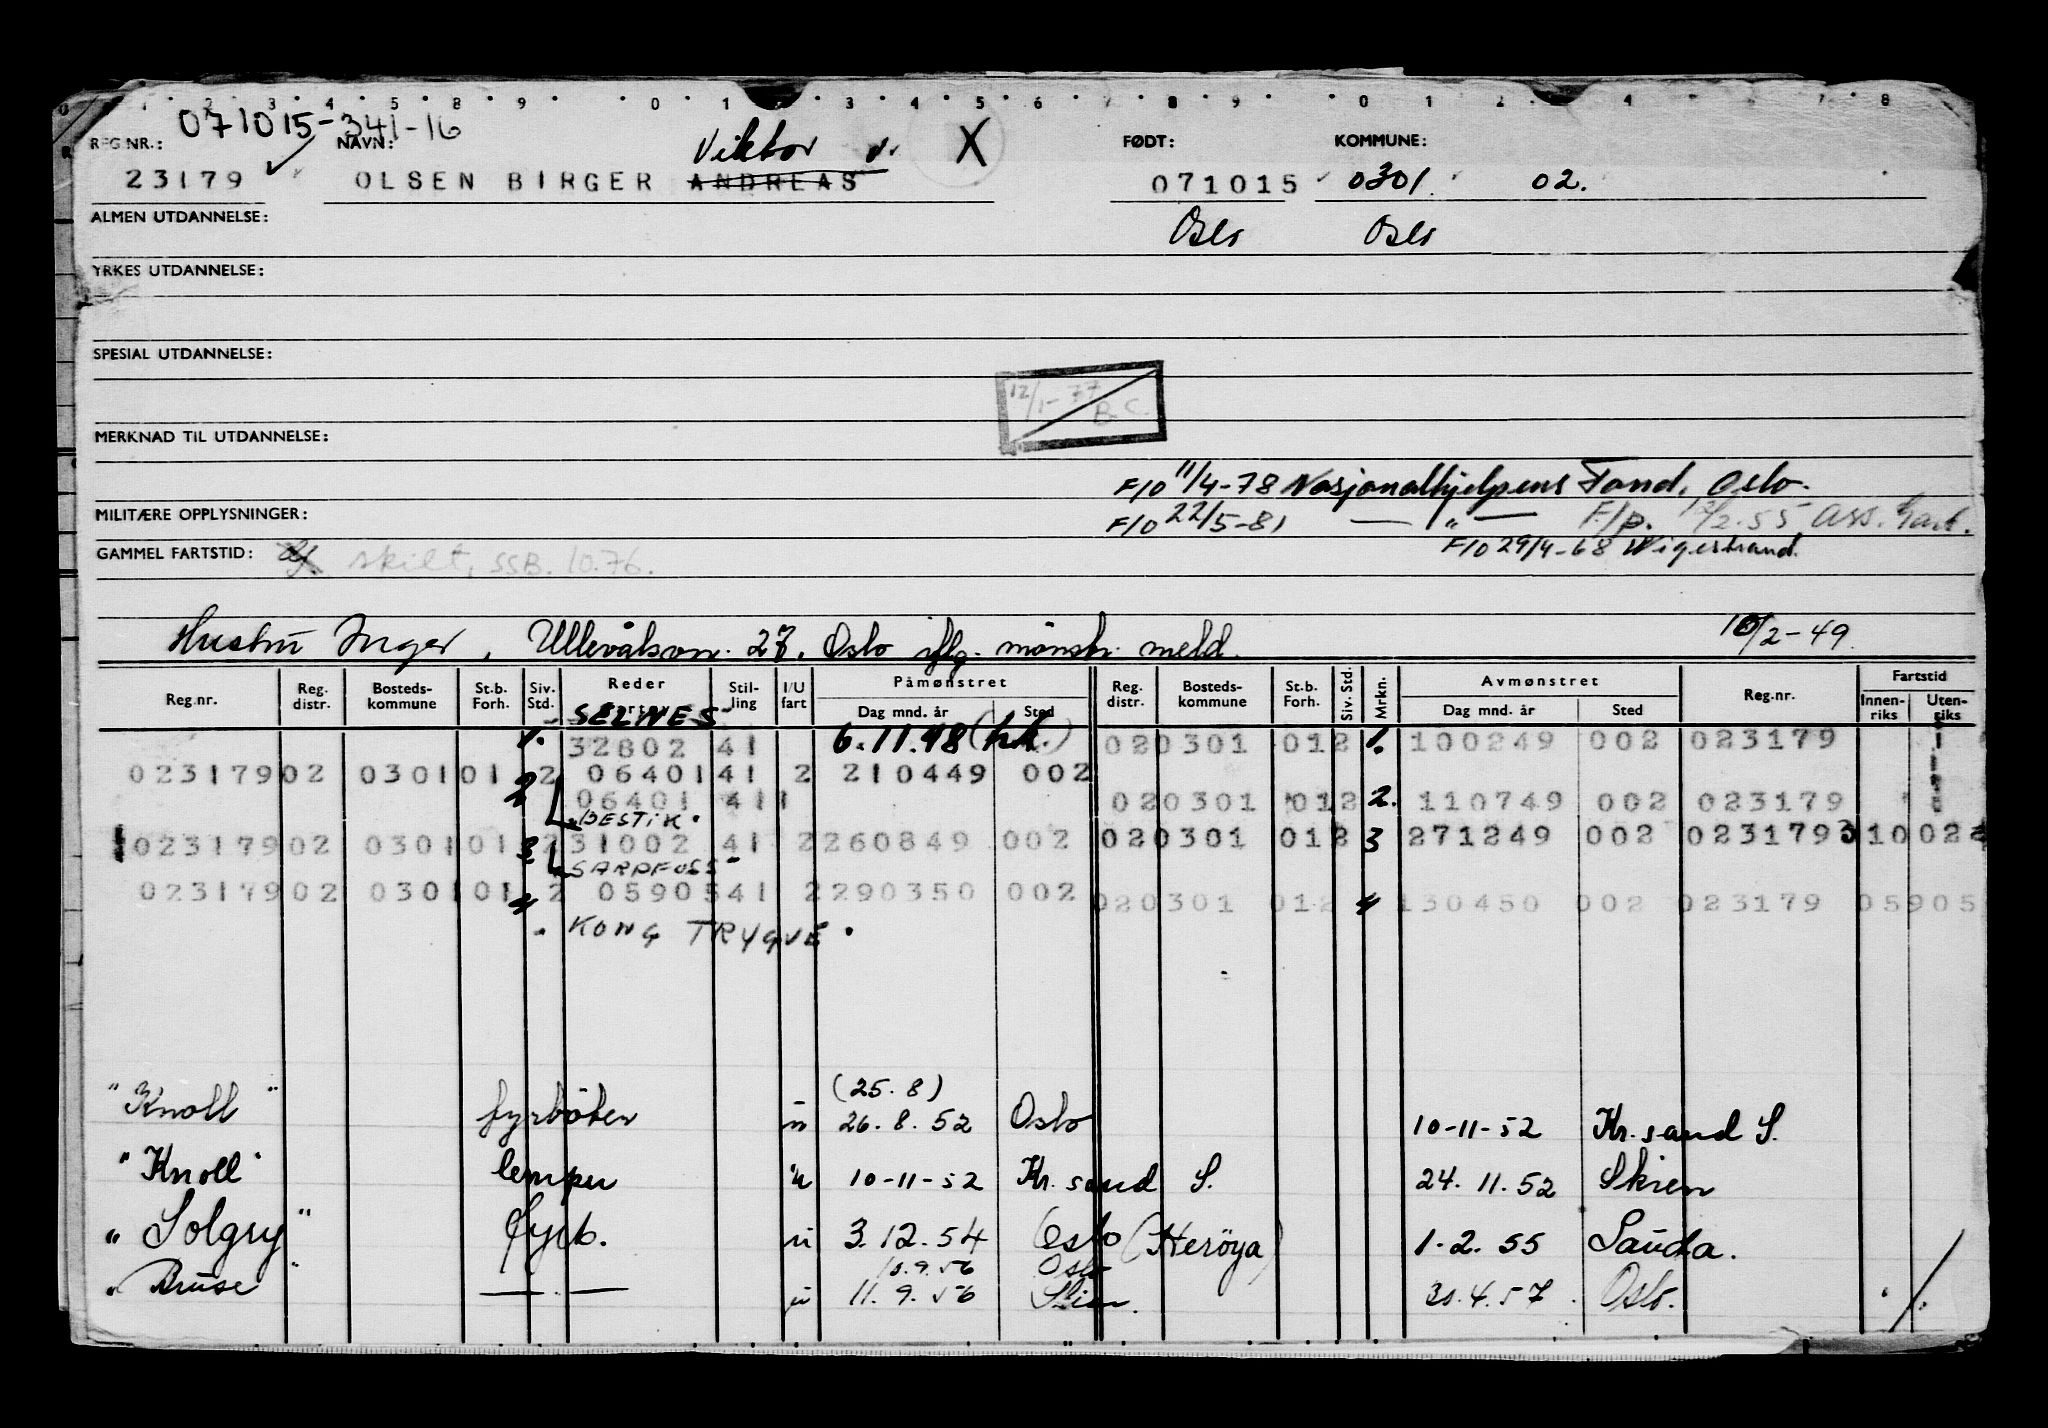 1 2 3 4 5 8 9 0 1 3 4 5 6 7 8 9 0 1 2 4 7 8
071015-341-16
REG.NR.: NAVN: Viktor v. X FØDT: KOMMUNE:
23179 OLSEN BIRGER ANDREAS 071015 0301 02.
ALMEN UTDANNELSE: Oslo Oslo
YRKES UTDANNELSE:
SPESIAL UTDANNELSE:
12/1-77 B.C.
MERKNAD TIL UTDANNELSE:
F/O 11/4-78 Nasjonalhjelpens Fond, Oslo.
MILITÆRE OPPLYSNINGER: F/O 22/5-81 — " — F/p. 12/2.55 Ass. Gart.
GAMMEL FARTSTID: skilt, SSB. 10.76. F/O 29/4-68 Wigestrand.
Hustru Inger, Ullevålsvn. 27, Oslo iflg. mønstr. meld. 10/2-49.
Reg.nr. Reg. distr. Bosteds-kommune St.b. Forh. Siv. Std. Reder Stil-ling I/U fart Påmønstret Dag mnd. år Sted Reg. distr. Bosteds-kommune St.b. Forh. Siv. Std. Mrkn. Avmønstret Dag mnd. år Sted Reg.nr. Fartstid Innen-riks Uten-riks
- SELNES -
1. 32802 41 6.11.48 (hk.) 020301 012 1. 100249 002 023179
023179 02 0301 01 2 06401 41 2 210449 002
2 06401 411 020301 012 2. 110749 002 023179
"BESTIK"
023179 02 0301 01 2 3 31002 41 2 260849 002 020301 012 3 271249 002 023179 3 10 02
SARPFOSS
023179 02 0301 01 2 4 05905 41 2 290350 002 020301 012 4 130450 002 023179 05905
"KONG TRYGVE"
(25.8)
"Knoll" fyrbøter u 26.8.52 Oslo 10-11-52 Kr.sand S.
"Knoll" lemper u 10-11-52 Kr.sand S. 24.11.52 Skien
"Solgry" fyrb. u 3.12.54 Oslo (Herøya) 1.2.55 Sauda.
10.9.56 Oslo
"Bruse" — . — u 11.9.56 Skien. 30.4.57 Oslo.